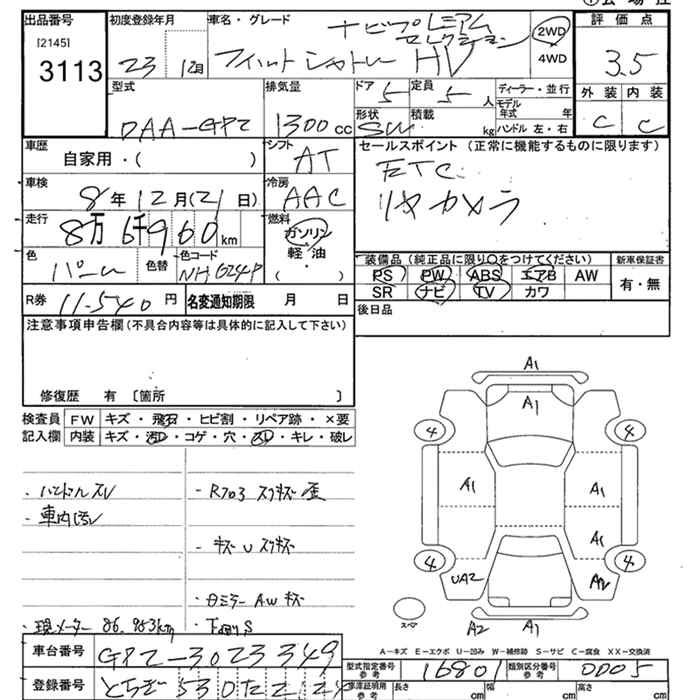 出品番号 初度登録年月 車名・グレード 評価点
[2145] 3113
23 12月 フィットシャトル HV ナビプレミアムセレクション 2WD 4WD 3.5
型式 排気量 ドア 定員 ディーラー・並行 外装 内装
DAA-GP2 1300cc 5 5人 モデル年式 年 C C
形状 積載 SW kg ハンドル 左・右
車歴 シフト セールスポイント (正常に機能するものに限ります)
自家用・( ) AT ETC
車検 冷房
8年12月(21日) AAC リヤカメラ
走行 燃料
8万6千960km ガソリン 軽・油 ( )
色 色替 色コード 装備品 (純正品に限り○をつけてください) 新車保証書
パール NH624P PS PW ABS エアB AW 有・無
SR ナビ TV カワ
R券 11,540円 名変通知期限 月 日 後日品
注意事項申告欄(不具合内容等は具体的に記入して下さい)
修復歴 有 [箇所 ]
検査員 FW キズ・飛石・ヒビ割・リペア跡・×要
記入欄 内装 キズ・汚D・コゲ・穴・スレ・キレ・破レ
A1
A1
4 4
A1 A1
A1
4 4
UA2 A2
A1
スペア A2 A1
・ハンドルスレ ・Rフロ3 スリキズ 歪
・車内汚レ
・キズ U スリキズ
・Aミラー AW キズ
・現メーター 86,963km ・下回りS
A-キズ E-エクボ U-凹み W-補修跡 S-サビ C-腐食 XX-交換済
車台番号 GP2-3023349
型式指定番号 参考 16801 類別区分番号 参考 0005
登録番号 とちぎ530た
車庫証明用 参考 長さ cm 幅 cm 高さ cm